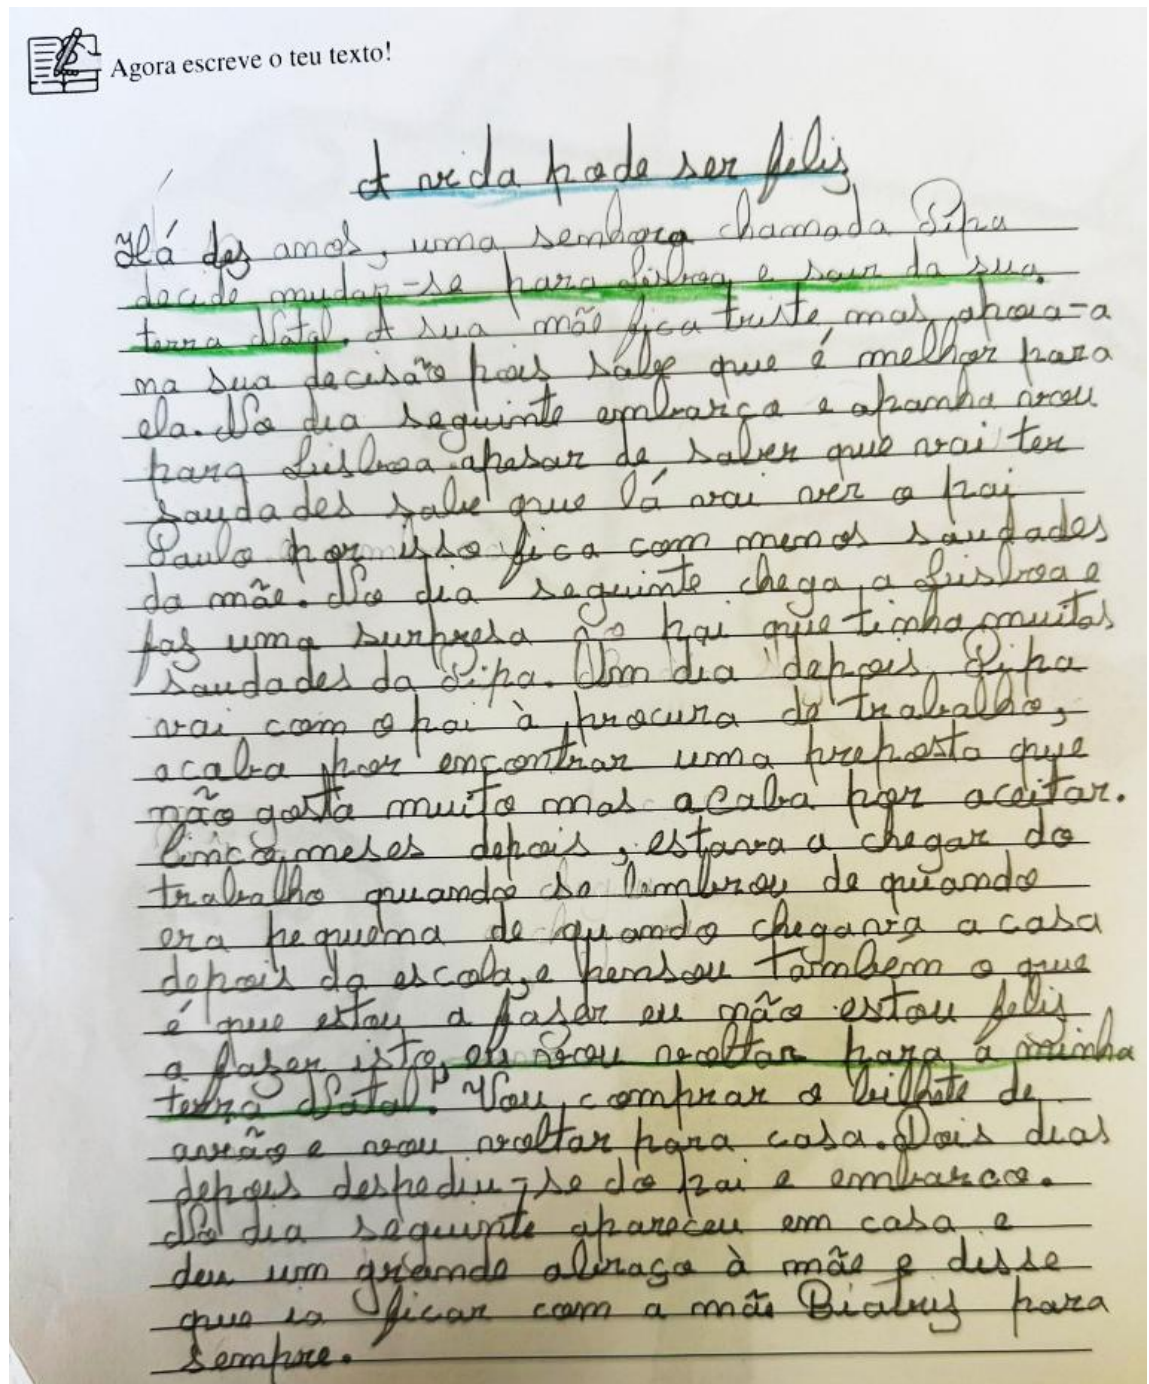 Agora escreve o teu texto!
A vida pode ser felis
Há des anos, uma senhora chamada Pipa
decide mudar-se para Lisboa e sair da sua
terra Natal. A sua mãe fica triste, mas apoia-a
na sua decisão pois sabe que é melhor para
ela. No dia seguinte embarca e apanha voou
para Lisboa apesar de saber que vai ter
saudades sabe que lá vai ver o pai
Paulo por isso fica com menos saudades
da mãe. No dia seguinte chega a Lisboa e
fas uma surpresa ao pai que tinha muitas
saudades da Pipa. Um dia depois, Pipa
vai com o pai à procura de trabalho,
acaba por encontrar uma preposta que
não gosta muito mas acaba por aceitar.
Cinco meses depois, estava a chegar do
trabalho quando se lembrou de quando
era pequena de quando chegava a casa
depois da escola, e pensou também o que
é que estou a faser eu não estou felis
a fazer isto, eu vou voltar para a minha
terra Natal. Vou comprar o bilhete de
avião e vou voltar para casa. Dois dias
depois despediu-se do pai e embarco.
No dia seguinte apareceu em casa e
deu um grande abraço à mãe e disse
que ia ficar com a mãe Biatris para
sempre.